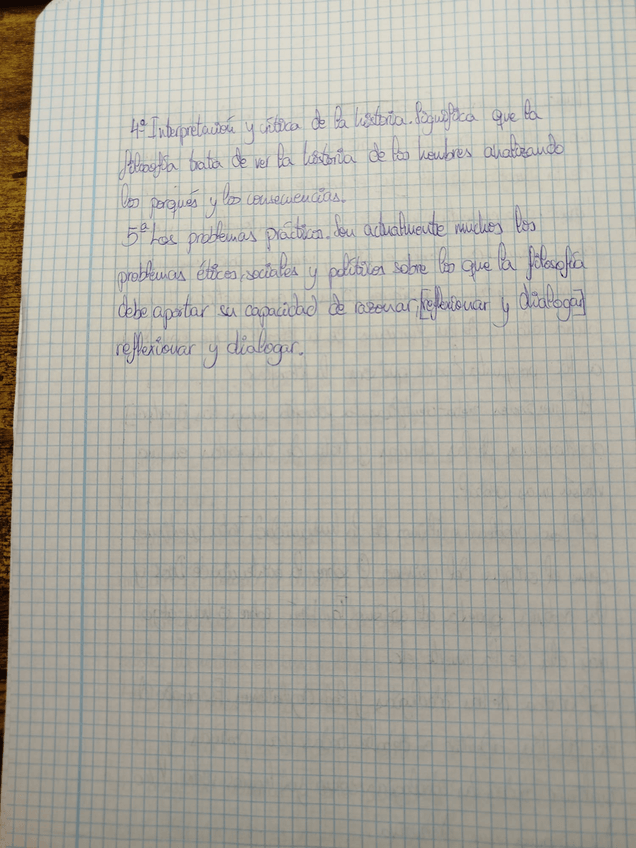 4º Interpretación y crítica de la historia. Significa que la
filosofía trata de ver la historia de los hombres analizando
los porqués y las consecuencias.
5º Los problemas prácticos. Son actualmente muchos los
problemas éticos, sociales y políticos sobre los que la filosofía
debe aportar su capacidad de razonar, [reflexionar y dialogar]
reflexionar y dialogar.